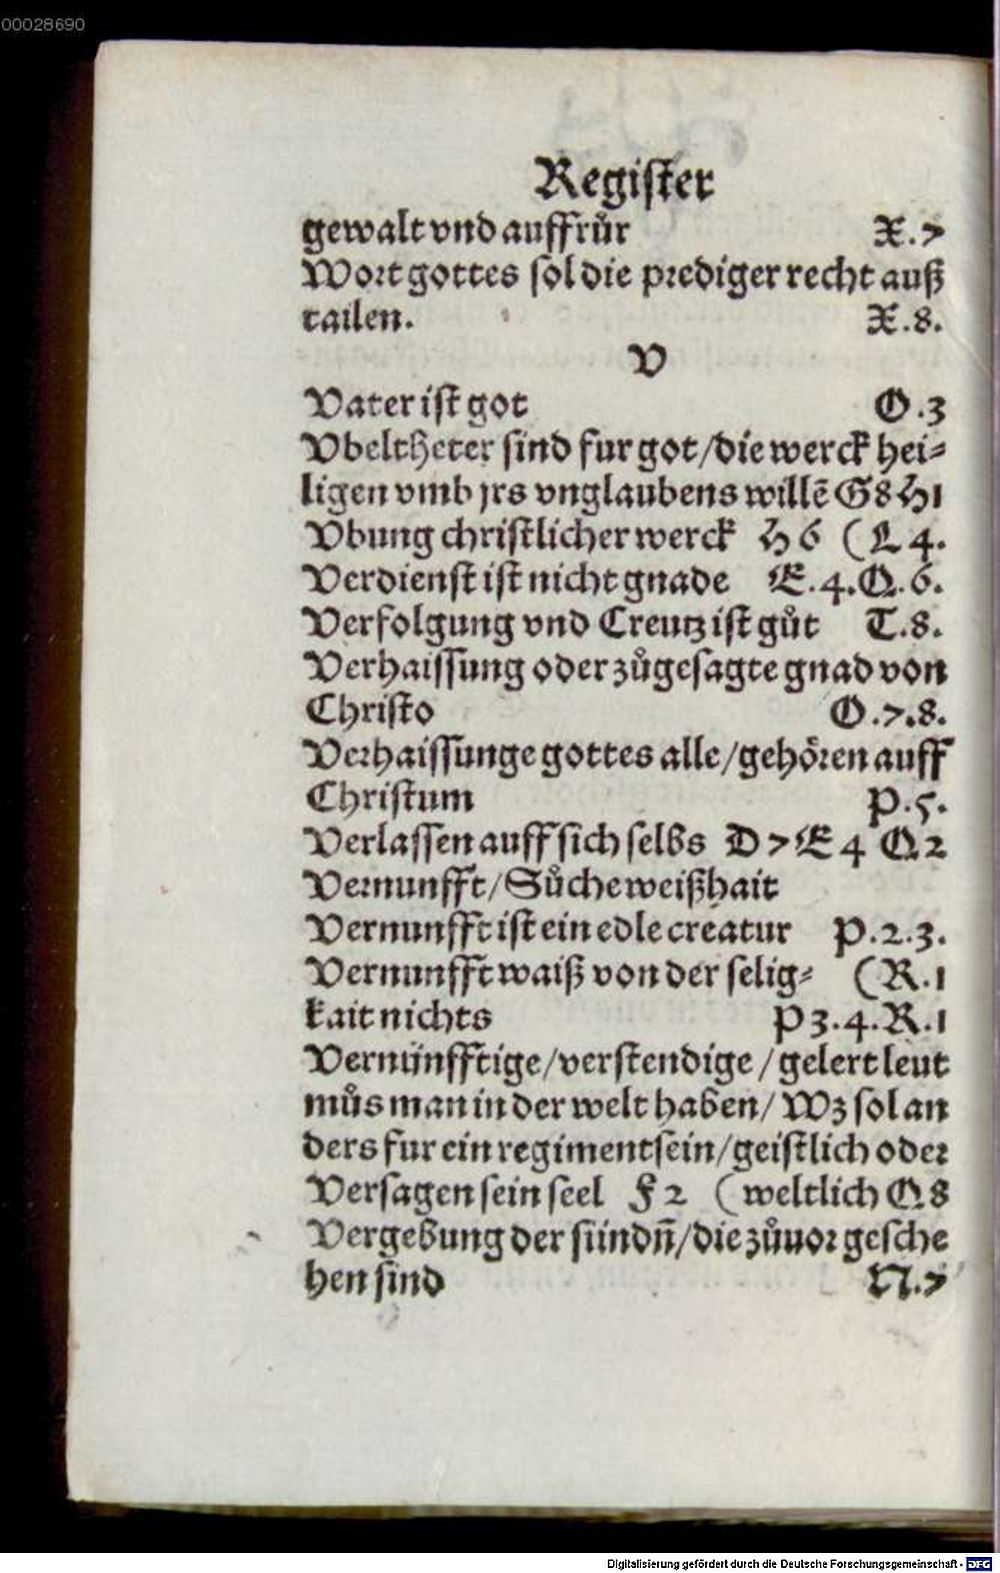 00028690
Regiſter
gewalt vnd auffrůr X.7
Wort gottes ſol die prediger recht auß
tailen. X.8.
V
Vater iſt got O.3
Vbeltheter ſind fur got/die werck hei⸗
ligen vmb jrs vnglaubens willē G8 H1
Vbung chriſtlicher werck H 6 (L 4.
Verdienſt iſt nicht gnade E.4.Q.6.
Verfolgung vnd Creutz iſt gůt T.8.
Verhaiſſung oder zůgeſagte gnad von
Chriſto O.7.8.
Verhaiſſunge gottes alle/gehören auff
Chriſtum P.5.
Verlaſſen auff ſich ſelbs D 7 E 4 Q 2
Vernunfft/Sůche weißhait
Vernunfft iſt ein edle creatur P.2.3.
Vernunfft waiß von der ſelig⸗ (R.1
kait nichts P3.4.R.1
Vernünfftige/verſtendige/gelert leut
můs man in der welt haben/Wz ſol an
ders fur ein regiment ſein/geiſtlich oder
Verſagen ſein ſeel F 2 (weltlich Q 8
Vergebung der ſündn̄/die zůuor geſche
hen ſind N.7
Digitalisierung gefördert durch die Deutsche Forschungsgemeinschaft - DFG